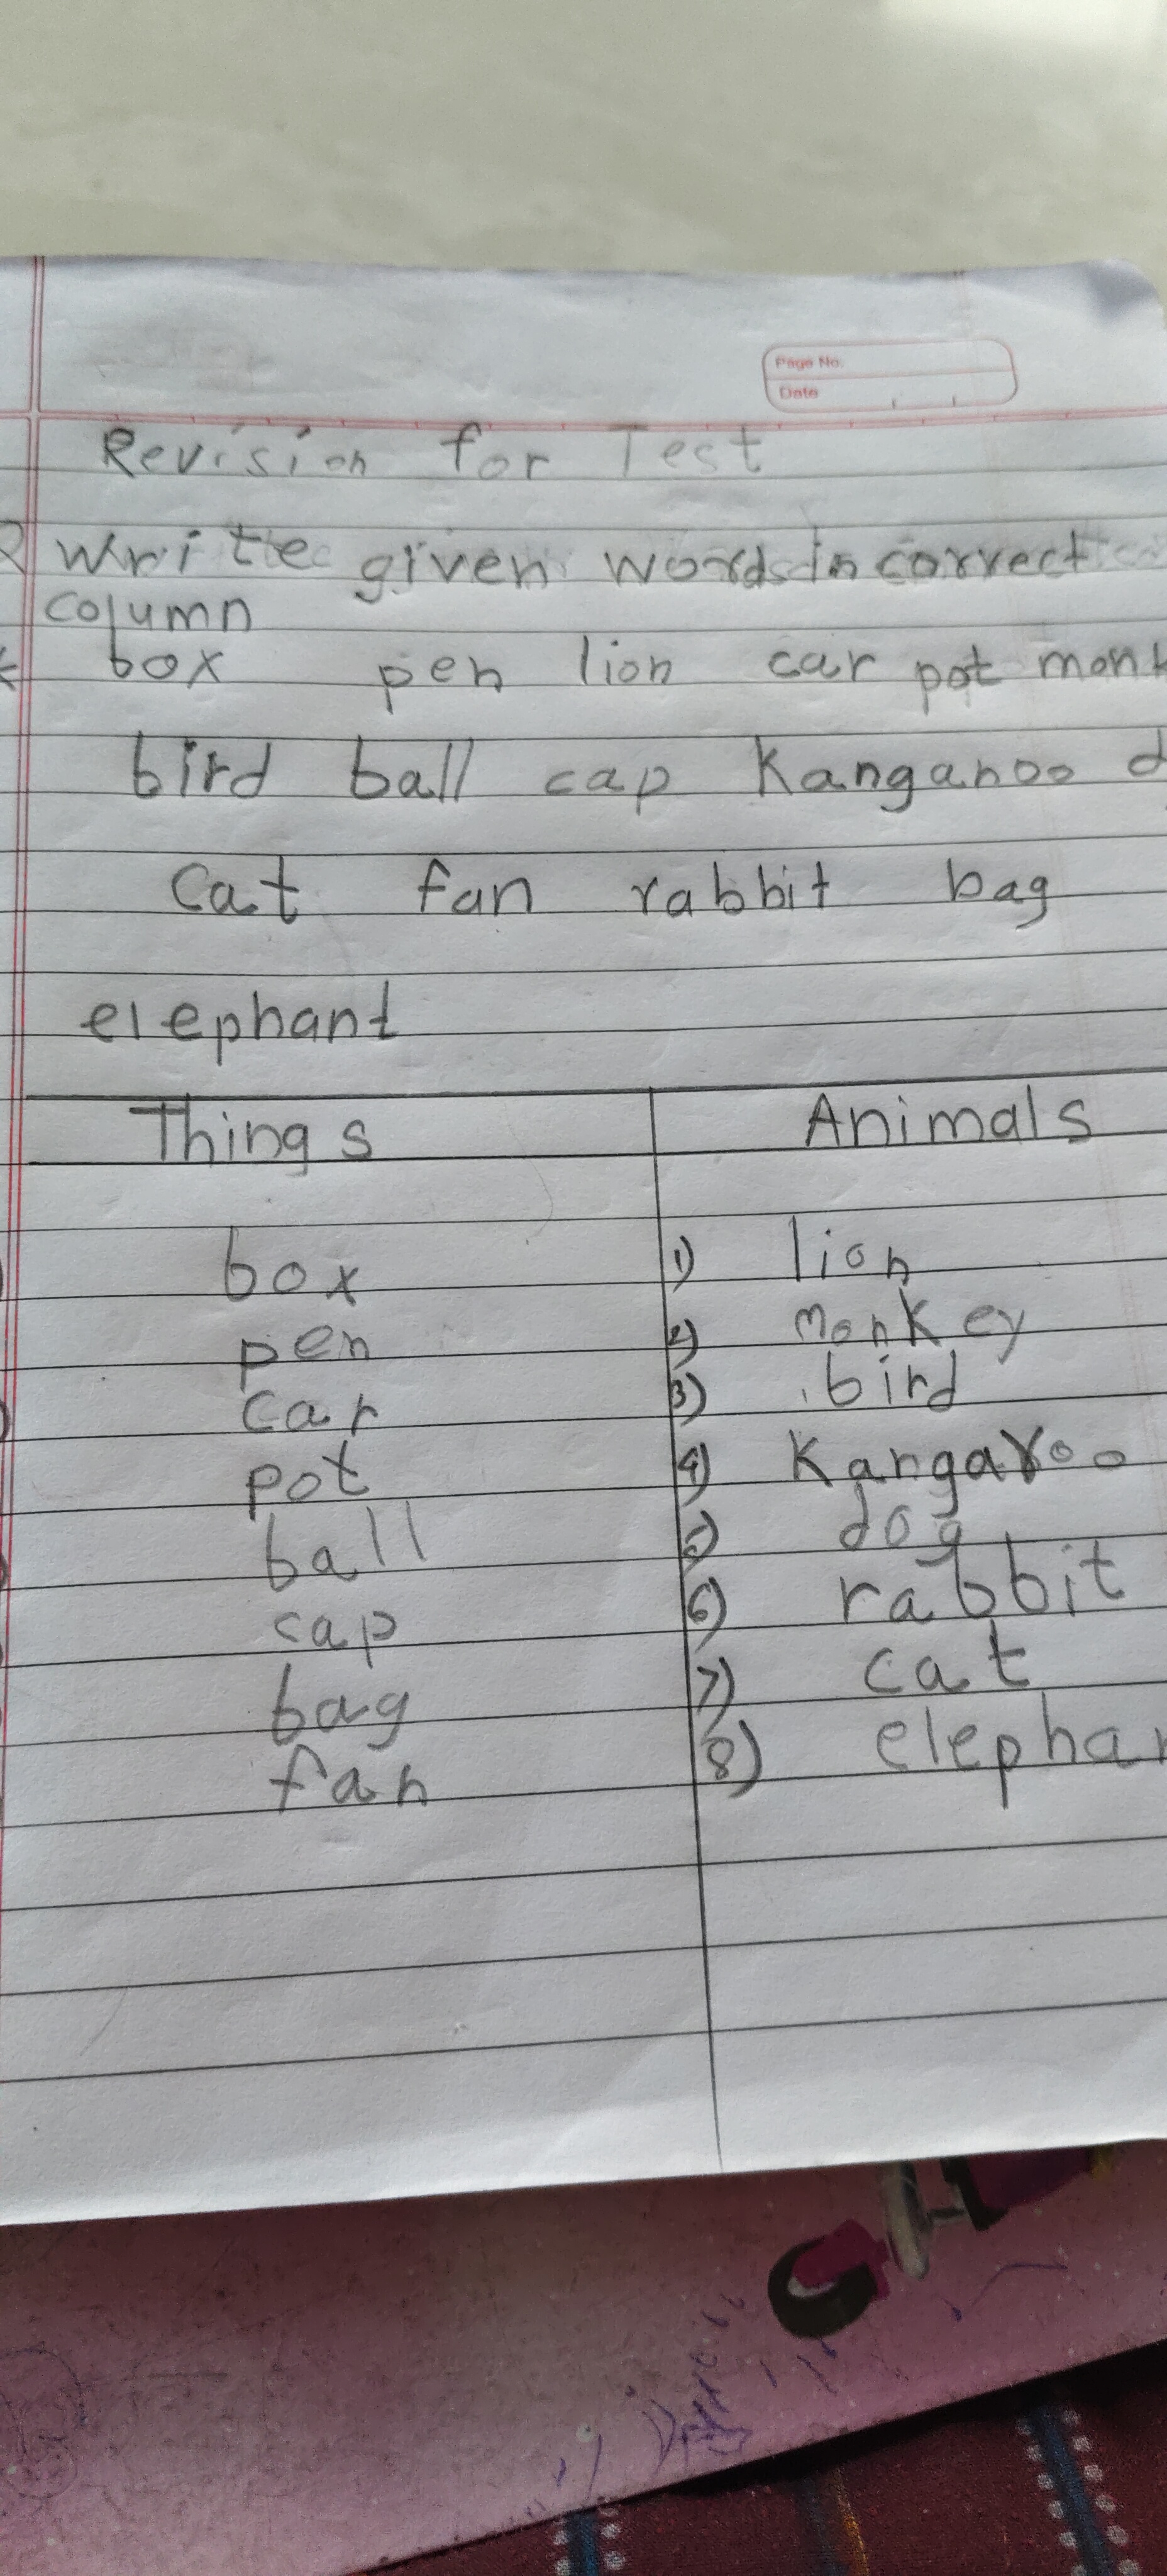 Page No.
Date
Revision for Test
Write given words in correct
column
box pen lion car pot monk
bird ball cap Kanganoo d
cat fan rabbit bag
elephant
Things Animals
box 1) lion
pen 2) monkey
car 3) bird
pot 4) Kangaroo
ball 5) dog
cap 6) rabbit
bag 7) cat
fan 8) elephan